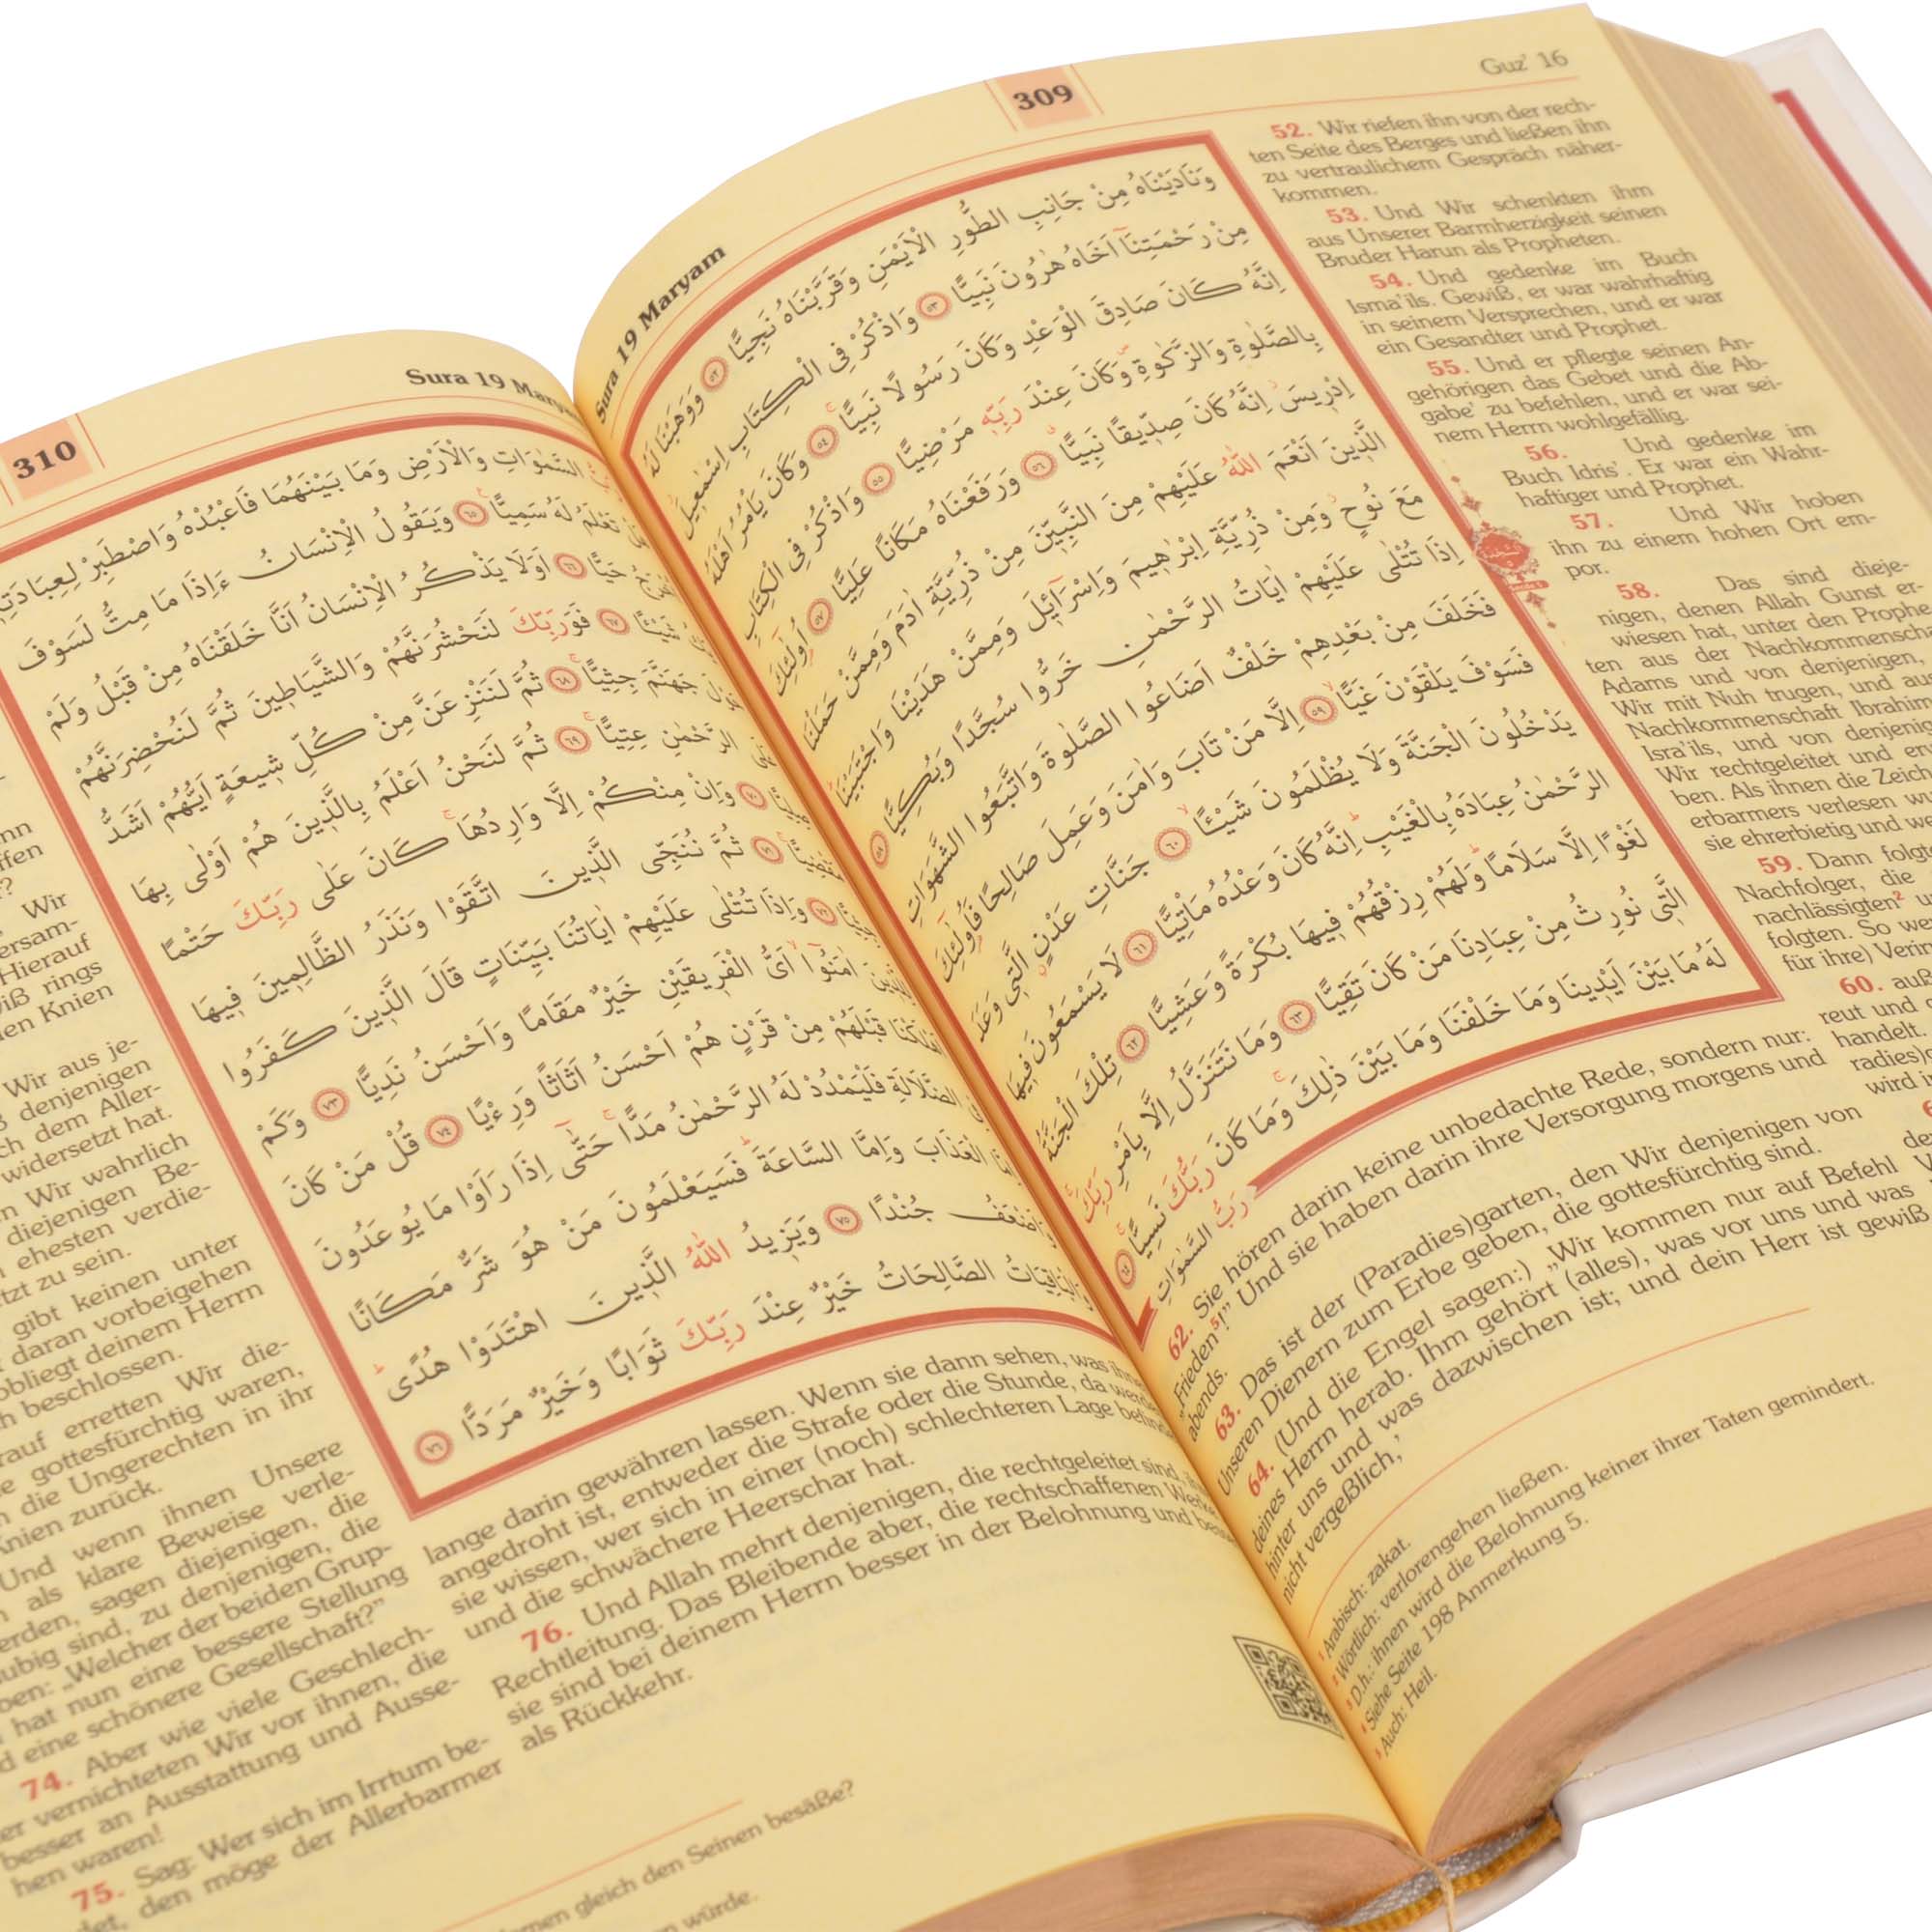 309
Guz' 16
Sura 19 Maryam
وَنَادَيْنَاهُ مِنْ جَانِبِ الطُّورِ الْاَيْمَنِ وَقَرَّبْنَاهُ نَجِيًّا ﴿٥٢﴾ وَوَهَبْنَا لَهُ
مِنْ رَحْمَتِنَٓا اَخَاهُ هٰرُونَ نَبِيًّا ﴿٥٣﴾ وَاذْكُرْ فِى الْكِتَابِ اِسْمٰعٖيلَ
اِنَّهُ كَانَ صَادِقَ الْوَعْدِ وَكَانَ رَسُولًا نَبِيًّا ﴿٥٤﴾ وَكَانَ يَاْمُرُ اَهْلَهُ
بِالصَّلٰوةِ وَالزَّكٰوةِ وَكَانَ عِنْدَ رَبِّهٖ مَرْضِيًّا ﴿٥٥﴾ وَاذْكُرْ فِى الْكِتَابِ
اِدْرٖيسَ اِنَّهُ كَانَ صِدّٖيقًا نَبِيًّا ﴿٥٦﴾ وَرَفَعْنَاهُ مَكَانًا عَلِيًّا ﴿٥٧﴾ اُولٰٓئِكَ
الَّذٖينَ اَنْعَمَ اللّٰهُ عَلَيْهِمْ مِنَ النَّبِيّٖنَ مِنْ ذُرِّيَّةِ اٰدَمَ وَمِمَّنْ حَمَلْنَا
مَعَ نُوحٍ وَمِنْ ذُرِّيَّةِ اِبْرٰهٖيمَ وَاِسْرَٓائٖلَ وَمِمَّنْ هَدَيْنَا وَاجْتَبَيْنَا
اِذَا تُتْلٰى عَلَيْهِمْ اٰيَاتُ الرَّحْمٰنِ خَرُّوا سُجَّدًا وَبُكِيًّا ﴿٥٨﴾
فَخَلَفَ مِنْ بَعْدِهِمْ خَلْفٌ اَضَاعُوا الصَّلٰوةَ وَاتَّبَعُوا الشَّهَوَاتِ
فَسَوْفَ يَلْقَوْنَ غَيًّا ﴿٥٩﴾ اِلَّا مَنْ تَابَ وَاٰمَنَ وَعَمِلَ صَالِحًا فَاُولٰٓئِكَ
يَدْخُلُونَ الْجَنَّةَ وَلَا يُظْلَمُونَ شَيْـًٔا ﴿٦٠﴾ جَنَّاتِ عَدْنٍ الَّتٖى وَعَدَ
الرَّحْمٰنُ عِبَادَهُ بِالْغَيْبِ اِنَّهُ كَانَ وَعْدُهُ مَاْتِيًّا ﴿٦١﴾ لَا يَسْمَعُونَ فٖيهَا
لَغْوًا اِلَّا سَلَامًا وَلَهُمْ رِزْقُهُمْ فٖيهَا بُكْرَةً وَعَشِيًّا ﴿٦٢﴾ تِلْكَ الْجَنَّةُ
الَّتٖى نُورِثُ مِنْ عِبَادِنَا مَنْ كَانَ تَقِيًّا ﴿٦٣﴾ وَمَا نَتَنَزَّلُ اِلَّا بِاَمْرِ رَبِّكَ
لَهُ مَا بَيْنَ اَيْدٖينَا وَمَا خَلْفَنَا وَمَا بَيْنَ ذٰلِكَ وَمَا كَانَ رَبُّكَ نَسِيًّا ﴿٦٤﴾
رَبُّ السَّمٰوَاتِ
52. Wir riefen ihn von der rech-
ten Seite des Berges und ließen ihn
zu vertraulichem Gespräch näher-
kommen.
53. Und Wir schenkten ihm
aus Unserer Barmherzigkeit seinen
Bruder Harun als Propheten.
54. Und gedenke im Buch
Isma'ils. Gewiß, er war wahrhaftig
in seinem Versprechen, und er war
ein Gesandter und Prophet.
55. Und er pflegte seinen An-
gehörigen das Gebet und die Ab-
gabe¹ zu befehlen, und er war sei-
nem Herrn wohlgefällig.
56. Und gedenke im
Buch Idris'. Er war ein Wahr-
haftiger und Prophet.
57. Und Wir hoben
ihn zu einem hohen Ort em-
por.
58. Das sind dieje-
nigen, denen Allah Gunst er-
wiesen hat, unter den Prophe
ten aus der Nachkommenscha
Adams und von denjenigen,
Wir mit Nuh trugen, und aus
Nachkommenschaft Ibrahim
Isra'ils, und von denjenig
Wir rechtgeleitet und er
ben. Als ihnen die Zeich
erbarmers verlesen wu
sie ehrerbietig und we
59. Dann folgt
Nachfolger, die
nachlässigten² u
folgten. So we
für ihre) Verir
60. auß
reut und
handelt.
radies)g
wird i
62. Sie hören darin keine unbedachte Rede, sondern nur:
„Frieden⁵!” Und sie haben darin ihre Versorgung morgens und
abends.
63. Das ist der (Paradies)garten, den Wir denjenigen von
Unseren Dienern zum Erbe geben, die gottesfürchtig sind.
64. (Und die Engel sagen:) „Wir kommen nur auf Befehl
deines Herrn herab. Ihm gehört (alles), was vor uns und was
hinter uns und was dazwischen ist; und dein Herr ist gewiß
nicht vergeßlich,
¹ Arabisch: zakat.
² Wörtlich: verlorengehen ließen.
³ D.h.: ihnen wird die Belohnung keiner ihrer Taten gemindert.
⁴ Siehe Seite 198 Anmerkung 5.
⁵ Auch: Heil.
310
Sura 19 Maryam
السَّمٰوَاتِ وَالْاَرْضِ وَمَا بَيْنَهُمَا فَاعْبُدْهُ وَاصْطَبِرْ لِعِبَادَتِهٖ
تَعْلَمُ لَهُ سَمِيًّا ﴿٦٥﴾ وَيَقُولُ الْاِنْسَانُ ءَاِذَا مَا مِتُّ لَسَوْفَ
حَيًّا ﴿٦٦﴾ اَوَلَا يَذْكُرُ الْاِنْسَانُ اَنَّا خَلَقْنَاهُ مِنْ قَبْلُ وَلَمْ
شَيْـًٔا ﴿٦٧﴾ فَوَرَبِّكَ لَنَحْشُرَنَّهُمْ وَالشَّيَاطٖينَ ثُمَّ لَنُحْضِرَنَّهُمْ
جَهَنَّمَ جِثِيًّا ﴿٦٨﴾ ثُمَّ لَنَنْزِعَنَّ مِنْ كُلِّ شٖيعَةٍ اَيُّهُمْ اَشَدُّ
الرَّحْمٰنِ عِتِيًّا ﴿٦٩﴾ ثُمَّ لَنَحْنُ اَعْلَمُ بِالَّذٖينَ هُمْ اَوْلٰى بِهَا
﴿٧٠﴾ وَاِنْ مِنْكُمْ اِلَّا وَارِدُهَا كَانَ عَلٰى رَبِّكَ حَتْمًا
﴿٧١﴾ ثُمَّ نُنَجِّى الَّذٖينَ اتَّقَوْا وَنَذَرُ الظَّالِمٖينَ فٖيهَا
﴿٧٢﴾ وَاِذَا تُتْلٰى عَلَيْهِمْ اٰيَاتُنَا بَيِّنَاتٍ قَالَ الَّذٖينَ كَفَرُوا
اٰمَنُٓوا اَىُّ الْفَرٖيقَيْنِ خَيْرٌ مَقَامًا وَاَحْسَنُ نَدِيًّا ﴿٧٣﴾ وَكَمْ
قَبْلَهُمْ مِنْ قَرْنٍ هُمْ اَحْسَنُ اَثَاثًا وَرِءْيًا ﴿٧٤﴾ قُلْ مَنْ كَانَ
الضَّلَالَةِ فَلْيَمْدُدْ لَهُ الرَّحْمٰنُ مَدًّا حَتّٰٓى اِذَا رَاَوْا مَا يُوعَدُونَ
الْعَذَابَ وَاِمَّا السَّاعَةَ فَسَيَعْلَمُونَ مَنْ هُوَ شَرٌّ مَكَانًا
وَاَضْعَفُ جُنْدًا ﴿٧٥﴾ وَيَزٖيدُ اللّٰهُ الَّذٖينَ اهْتَدَوْا هُدًى
الصَّالِحَاتُ خَيْرٌ عِنْدَ رَبِّكَ ثَوَابًا وَخَيْرٌ مَرَدًّا ﴿٧٦﴾
Wir
ersam-
Hierauf
iß rings
den Knien
Wir aus je-
denjenigen
ch dem Aller-
widersetzt hat.
n Wir wahrlich
diejenigen Be-
ehesten verdie-
tzt zu sein.
gibt keinen unter
daran vorbeigehen
obliegt deinem Herrn
h beschlossen.
rauf erretten Wir die-
e gottesfürchtig waren,
n die Ungerechten in ihr
Knien zurück.
Und wenn ihnen Unsere
als klare Beweise verle-
erden, sagen diejenigen, die
ubig sind, zu denjenigen, die
ben: „Welcher der beiden Grup-
hat nun eine bessere Stellung
d eine schönere Gesellschaft?”
74. Aber wie viele Geschlech-
er vernichteten Wir vor ihnen, die
besser an Ausstattung und Ausse-
hen waren!
75. Sag: Wer sich im Irrtum be-
det, den möge der Allerbarmer
lange darin gewähren lassen. Wenn sie dann sehen, was ihnen
angedroht ist, entweder die Strafe oder die Stunde, da werden
sie wissen, wer sich in einer (noch) schlechteren Lage befindet
und die schwächere Heerschar hat.
76. Und Allah mehrt denjenigen, die rechtgeleitet sind,
Rechtleitung. Das Bleibende aber, die rechtschaffenen Werke
sie sind bei deinem Herrn besser in der Belohnung und besser
als Rückkehr.
gleich den Seinen besäße?
würde.